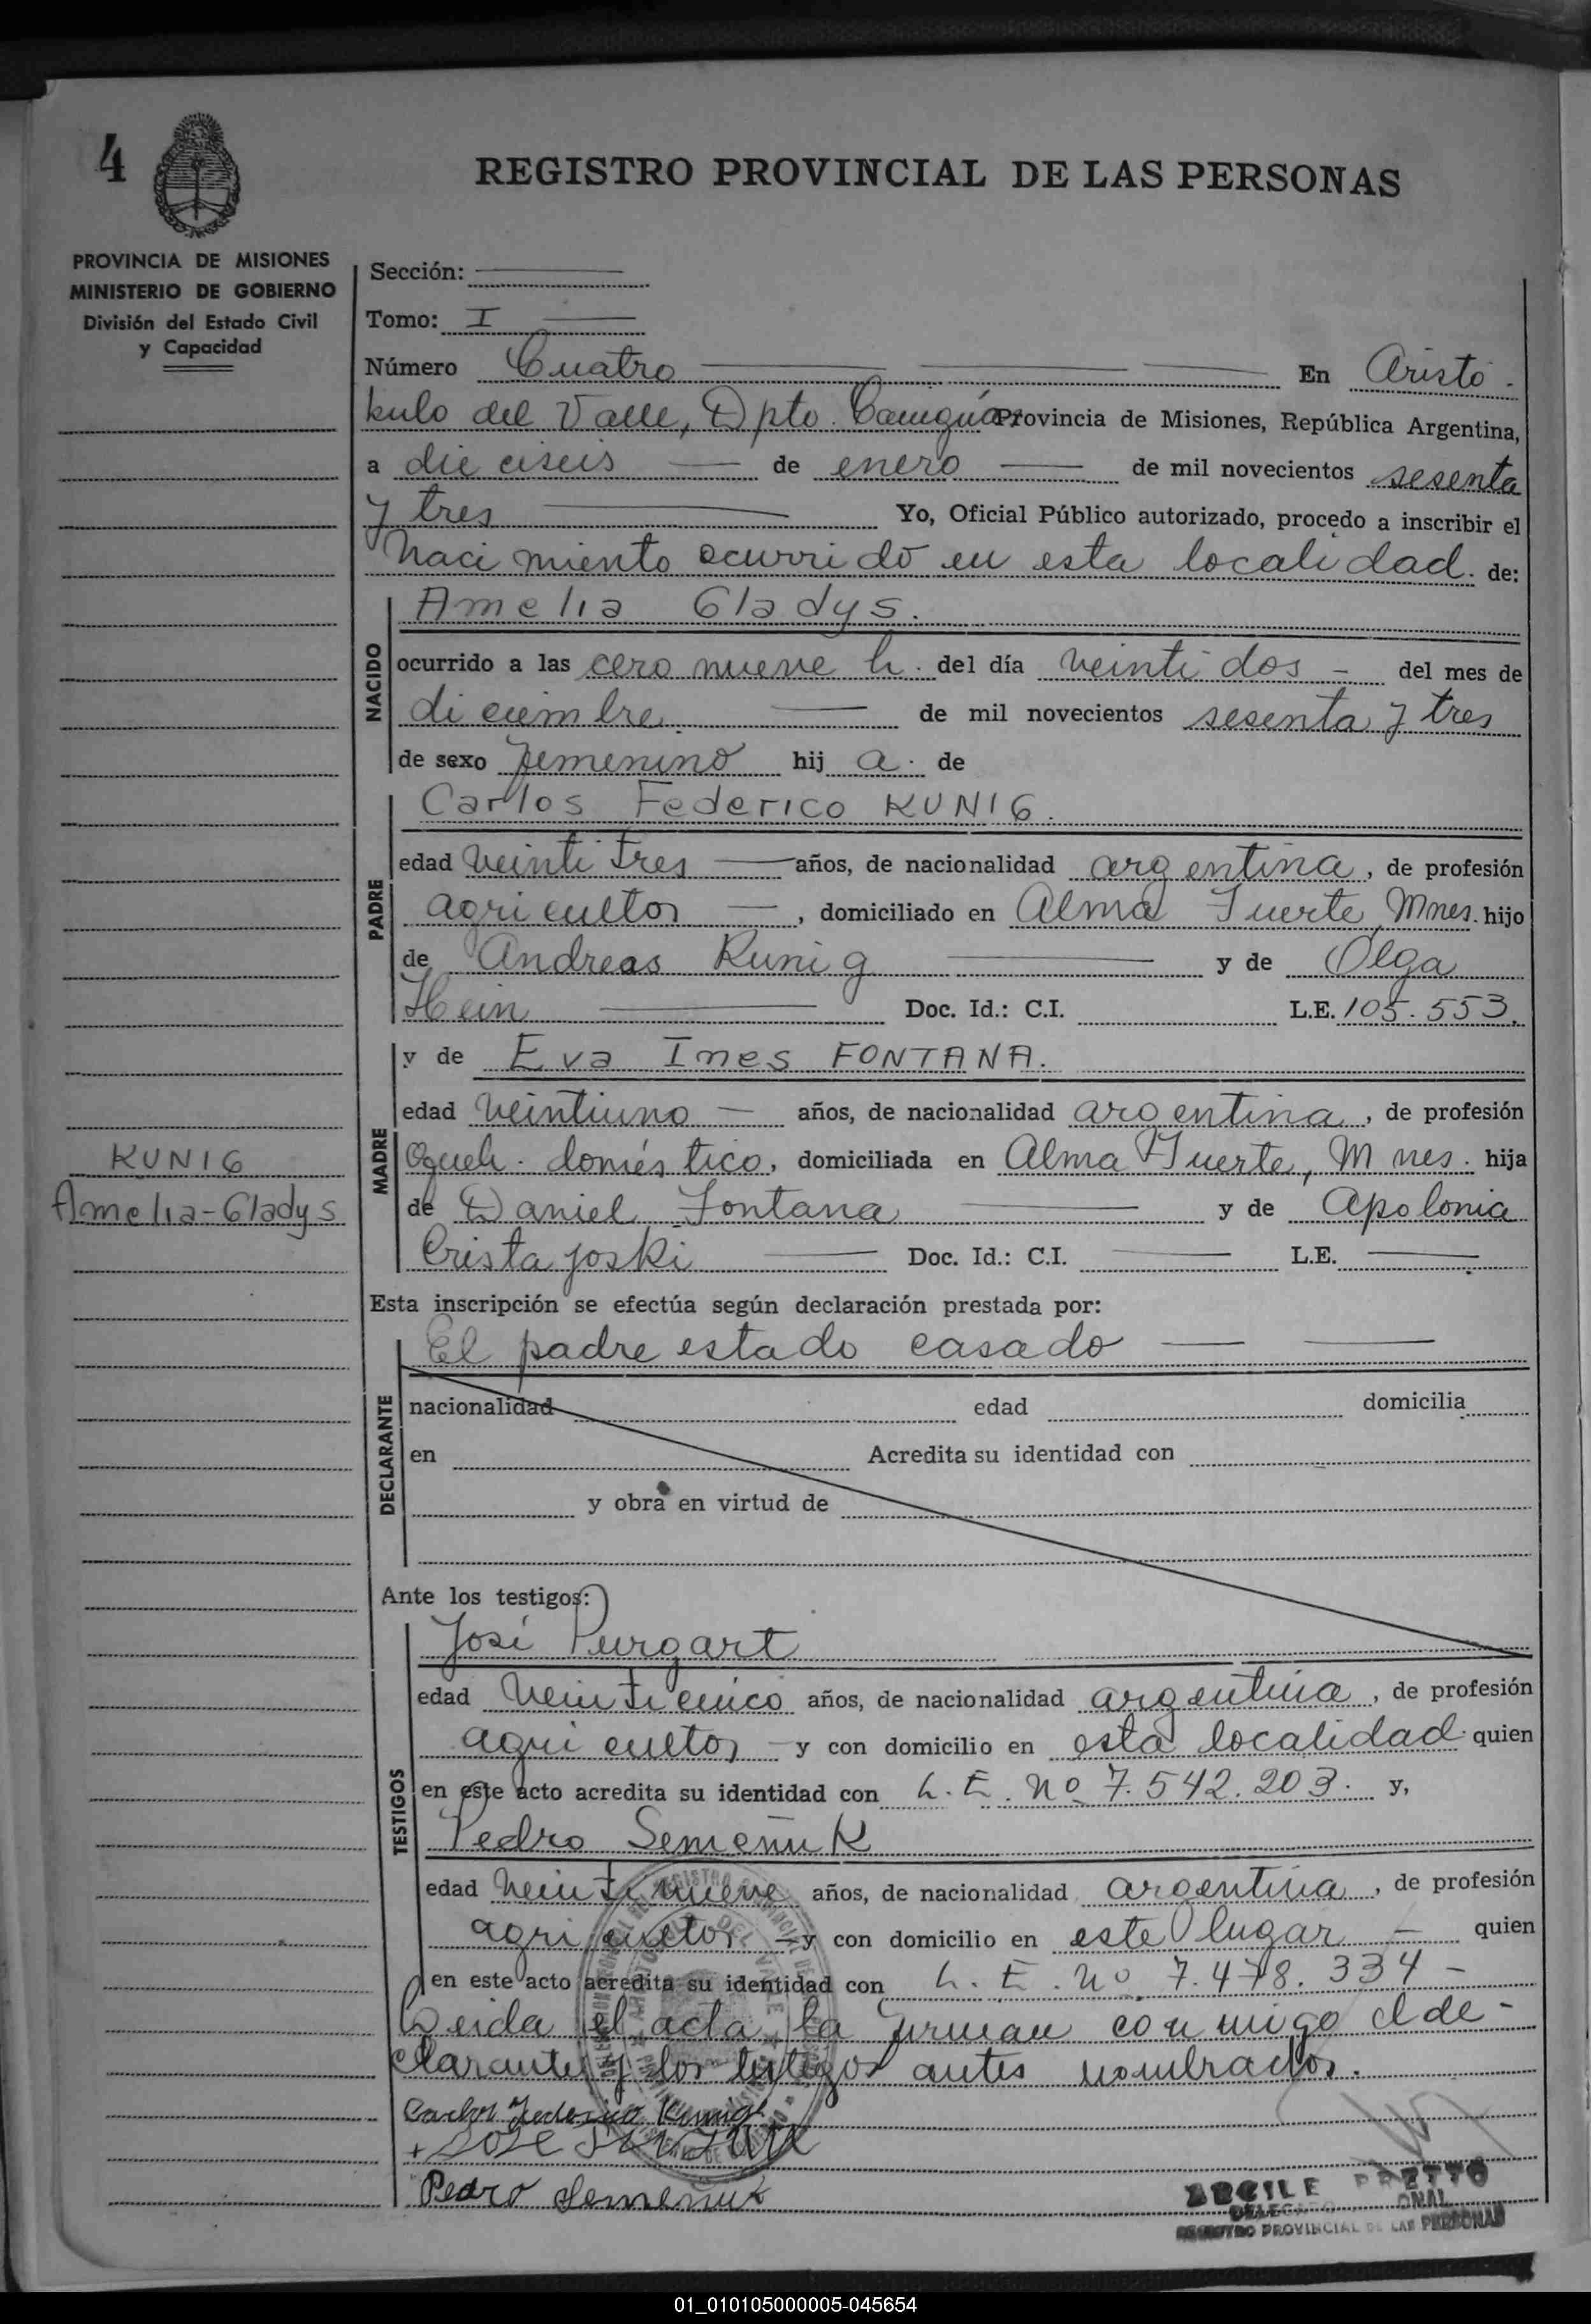 4
REGISTRO PROVINCIAL DE LAS PERSONAS
PROVINCIA DE MISIONES
MINISTERIO DE GOBIERNO
División del Estado Civil
y Capacidad
Sección:
Tomo: I
Número Cuatro En Aristó-
bulo del Valle, Dpto. Cainguás Provincia de Misiones, República Argentina,
a dieciseis de enero de mil novecientos sesenta
y tres Yo, Oficial Público autorizado, procedo a inscribir el
Nacimiento ocurrido en esta localidad. de:
NACIDO
Amelia Gladys.
ocurrido a las cero nueve h. del día veintidos - del mes de
diciembre de mil novecientos sesenta y tres
de sexo femenino hij a. de
PADRE
Carlos Federico KUNIG.
edad veintitres años, de nacionalidad argentina, de profesión
agricultor, domiciliado en Alma Fuerte, Mnes. hijo
de Andreas Kunig y de Olga
Hein Doc. Id.: C.I. L.E. 105.553.
MADRE
y de Eva Ines FONTANA.
edad veintiuno años, de nacionalidad argentina, de profesión
Queh. doméstico, domiciliada en Alma Fuerte, Mnes. hija
de Daniel Fontana y de Apolonia
Cristajoski Doc. Id.: C.I. L.E.
KUNIG
Amelia-Gladys
Esta inscripción se efectúa según declaración prestada por:
DECLARANTE
El padre estado casado
nacionalidad edad domicilia
en Acredita su identidad con
y obra en virtud de
Ante los testigos:
TESTIGOS
José Purgart
edad veinticinco años, de nacionalidad argentina, de profesión
agricultor y con domicilio en esta localidad quien
en este acto acredita su identidad con L.E. Nº 7.542.203. y,
Pedro Semeñuk
edad veintinueve años, de nacionalidad argentina, de profesión
agricultor y con domicilio en este lugar - quien
en este acto acredita su identidad con L.E. Nº 7.478.334 -
Leida el acta la firman conmigo el de-
clarante y los testigos antes nombrados.
Carlos Federico Kunig
+ JOSE
Pedro Semeñuk
ARCILE PRETTO
REGISTRO PROVINCIAL DE LAS PERSONAS
01_010105000005-045654